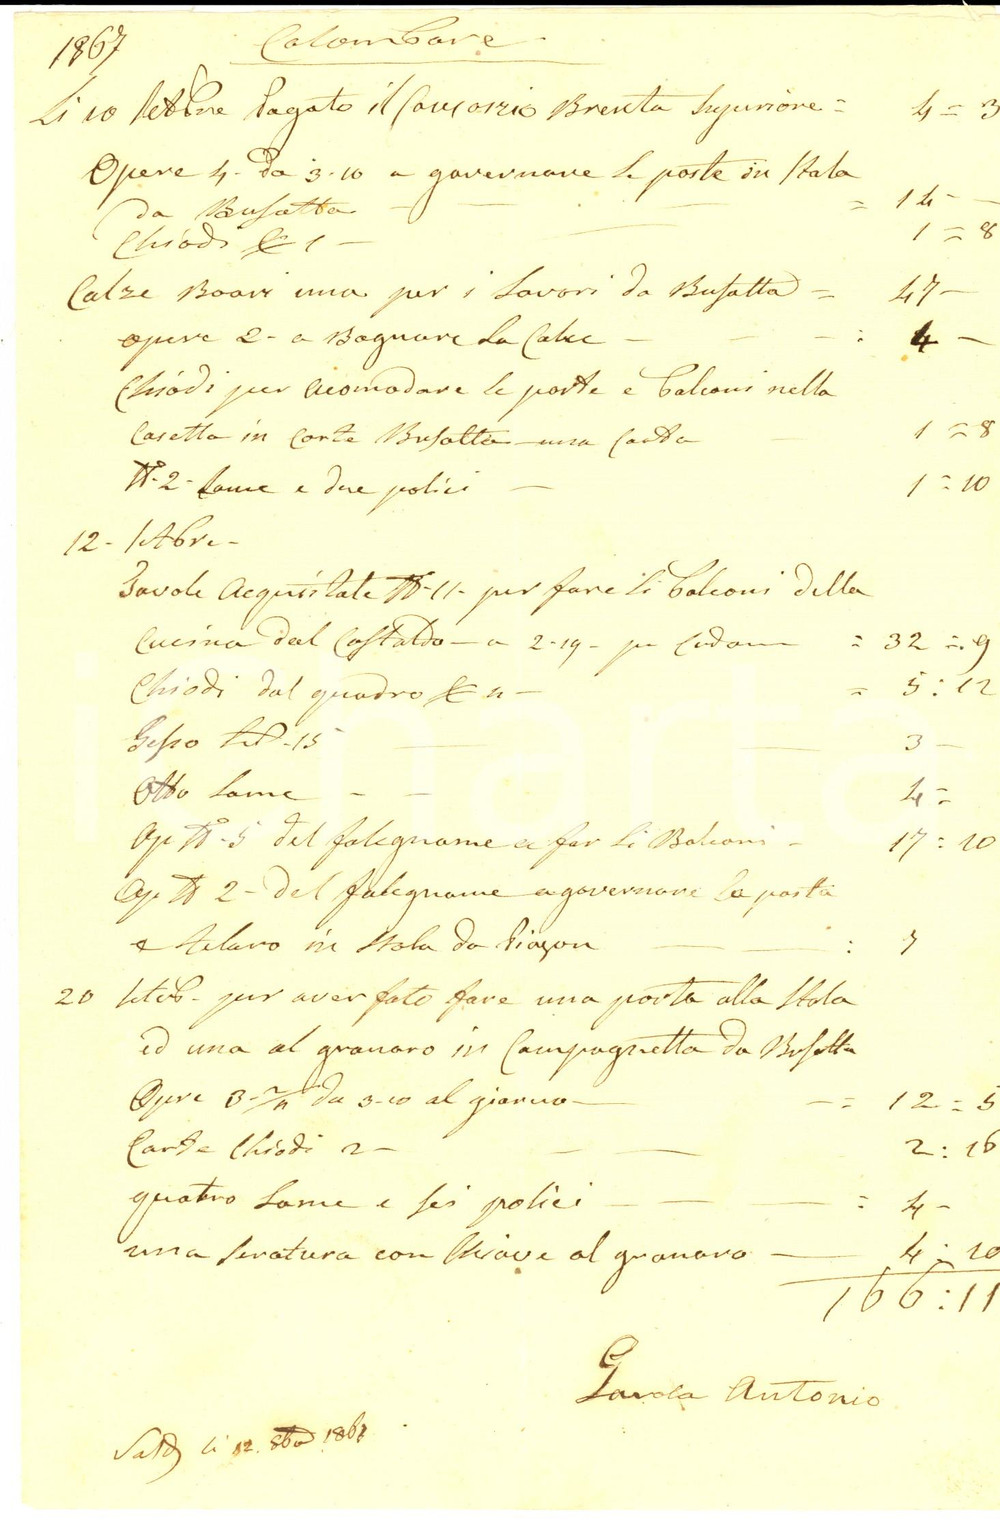 1867 Colombare
Li 10 Settbre Pagato il Consorzio Brenta Superiore = 4 = 3
Opere 4 - da 3-10 a governare le poste in Stala
da Busatta - = 14 -
Chiodi 1 - 1 = 8
Calze Boari una per i Lavori da Busatta = 47 -
opere 2 - a Bagnare La Calce - : 4 -
Chiodi per acomodare le porte e Balconi nella
Casetta in Corte Busatta una Carta 1 = 8
N° 2 - Lame e due polici - 1 = 10
12 - Settbre -
Tavole Acquistate N° 11 - per fare li Balconi della
Cucina dal Castaldo - a 2-19 - = 32 = 9
Chiodi dal quadro - = 5 : 12
Gesso - 15 3 -
Otto Lame - - 4 =
Op N° 5 del falegname a far li Balconi - 17 : 10
Op N° 2 - del falegname a governare la porta
e telaro in Stala da : 7
20 Settb - per aver fato fare una porta alla Stala
ed una al granaro in Campagnetta da Busatta
Opere 3 - da 3-10 al giorno - = 12 = 5
Carte Chiodi 2 - 2 : 16
quatro Lame e sei polici - = 4 -
una seratura con Chiave al granaro - 4 : 10
166 : 11
Antonio
li 12 1867